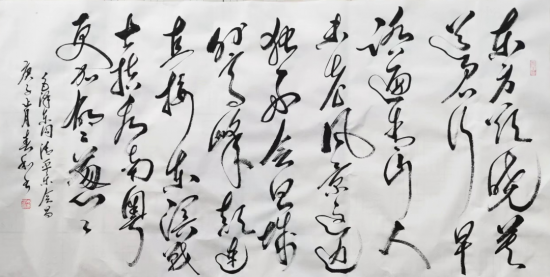 东方欲晓莫
道君行早
踏遍青山人
未老风景这边
独好会昌城
外高峰颠连
直接东溟战
士指看南粤
更加郁々葱々
毛泽东词清平乐会昌
庚子 月春 书